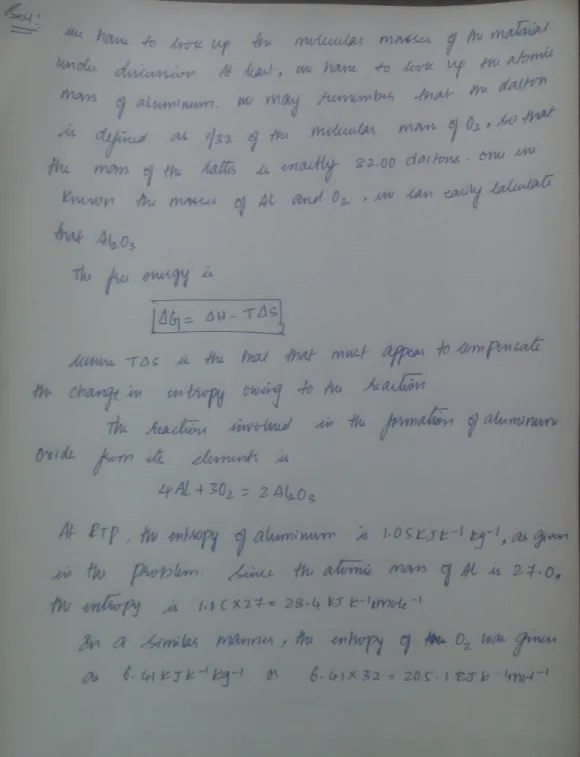 Sol:
we have to look up the molecular masses of the material
under discussion. At least, we have to look up the atomic
mass of aluminum. we may remember that the dalton
is defined as 1/32 of the molecular mass of O2, so that
the mass of the latter is exactly 32.00 daltons. once we
known the masses of Al and O2, we can easily calculate
that Al2O3
The free energy is
ΔG = ΔH - TΔS
where TΔS is the heat that must appear to compensate
the change in entropy owing to the reaction
The reaction involved in the formation of aluminum
oxide from its elements is
4Al + 3O2 = 2Al2O3
At RTP, the entropy of aluminum is 1.05 KJ K-1 kg-1, as given
in the problem. Since the atomic mass of Al is 27.0,
the entropy is 1.05 × 27 = 28.4 KJ K-1 kmole-1
In a similar manner, the entropy of the O2 was given
as 6.41 KJ K-1 kg-1 or 6.41 × 32 = 205.1 KJ K-1